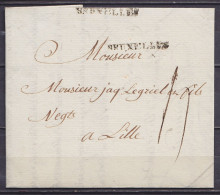 BRUXELLES
BRUXELLES
Monsieur
Monsieur jaq Legriel en fils
Negts
a Lille